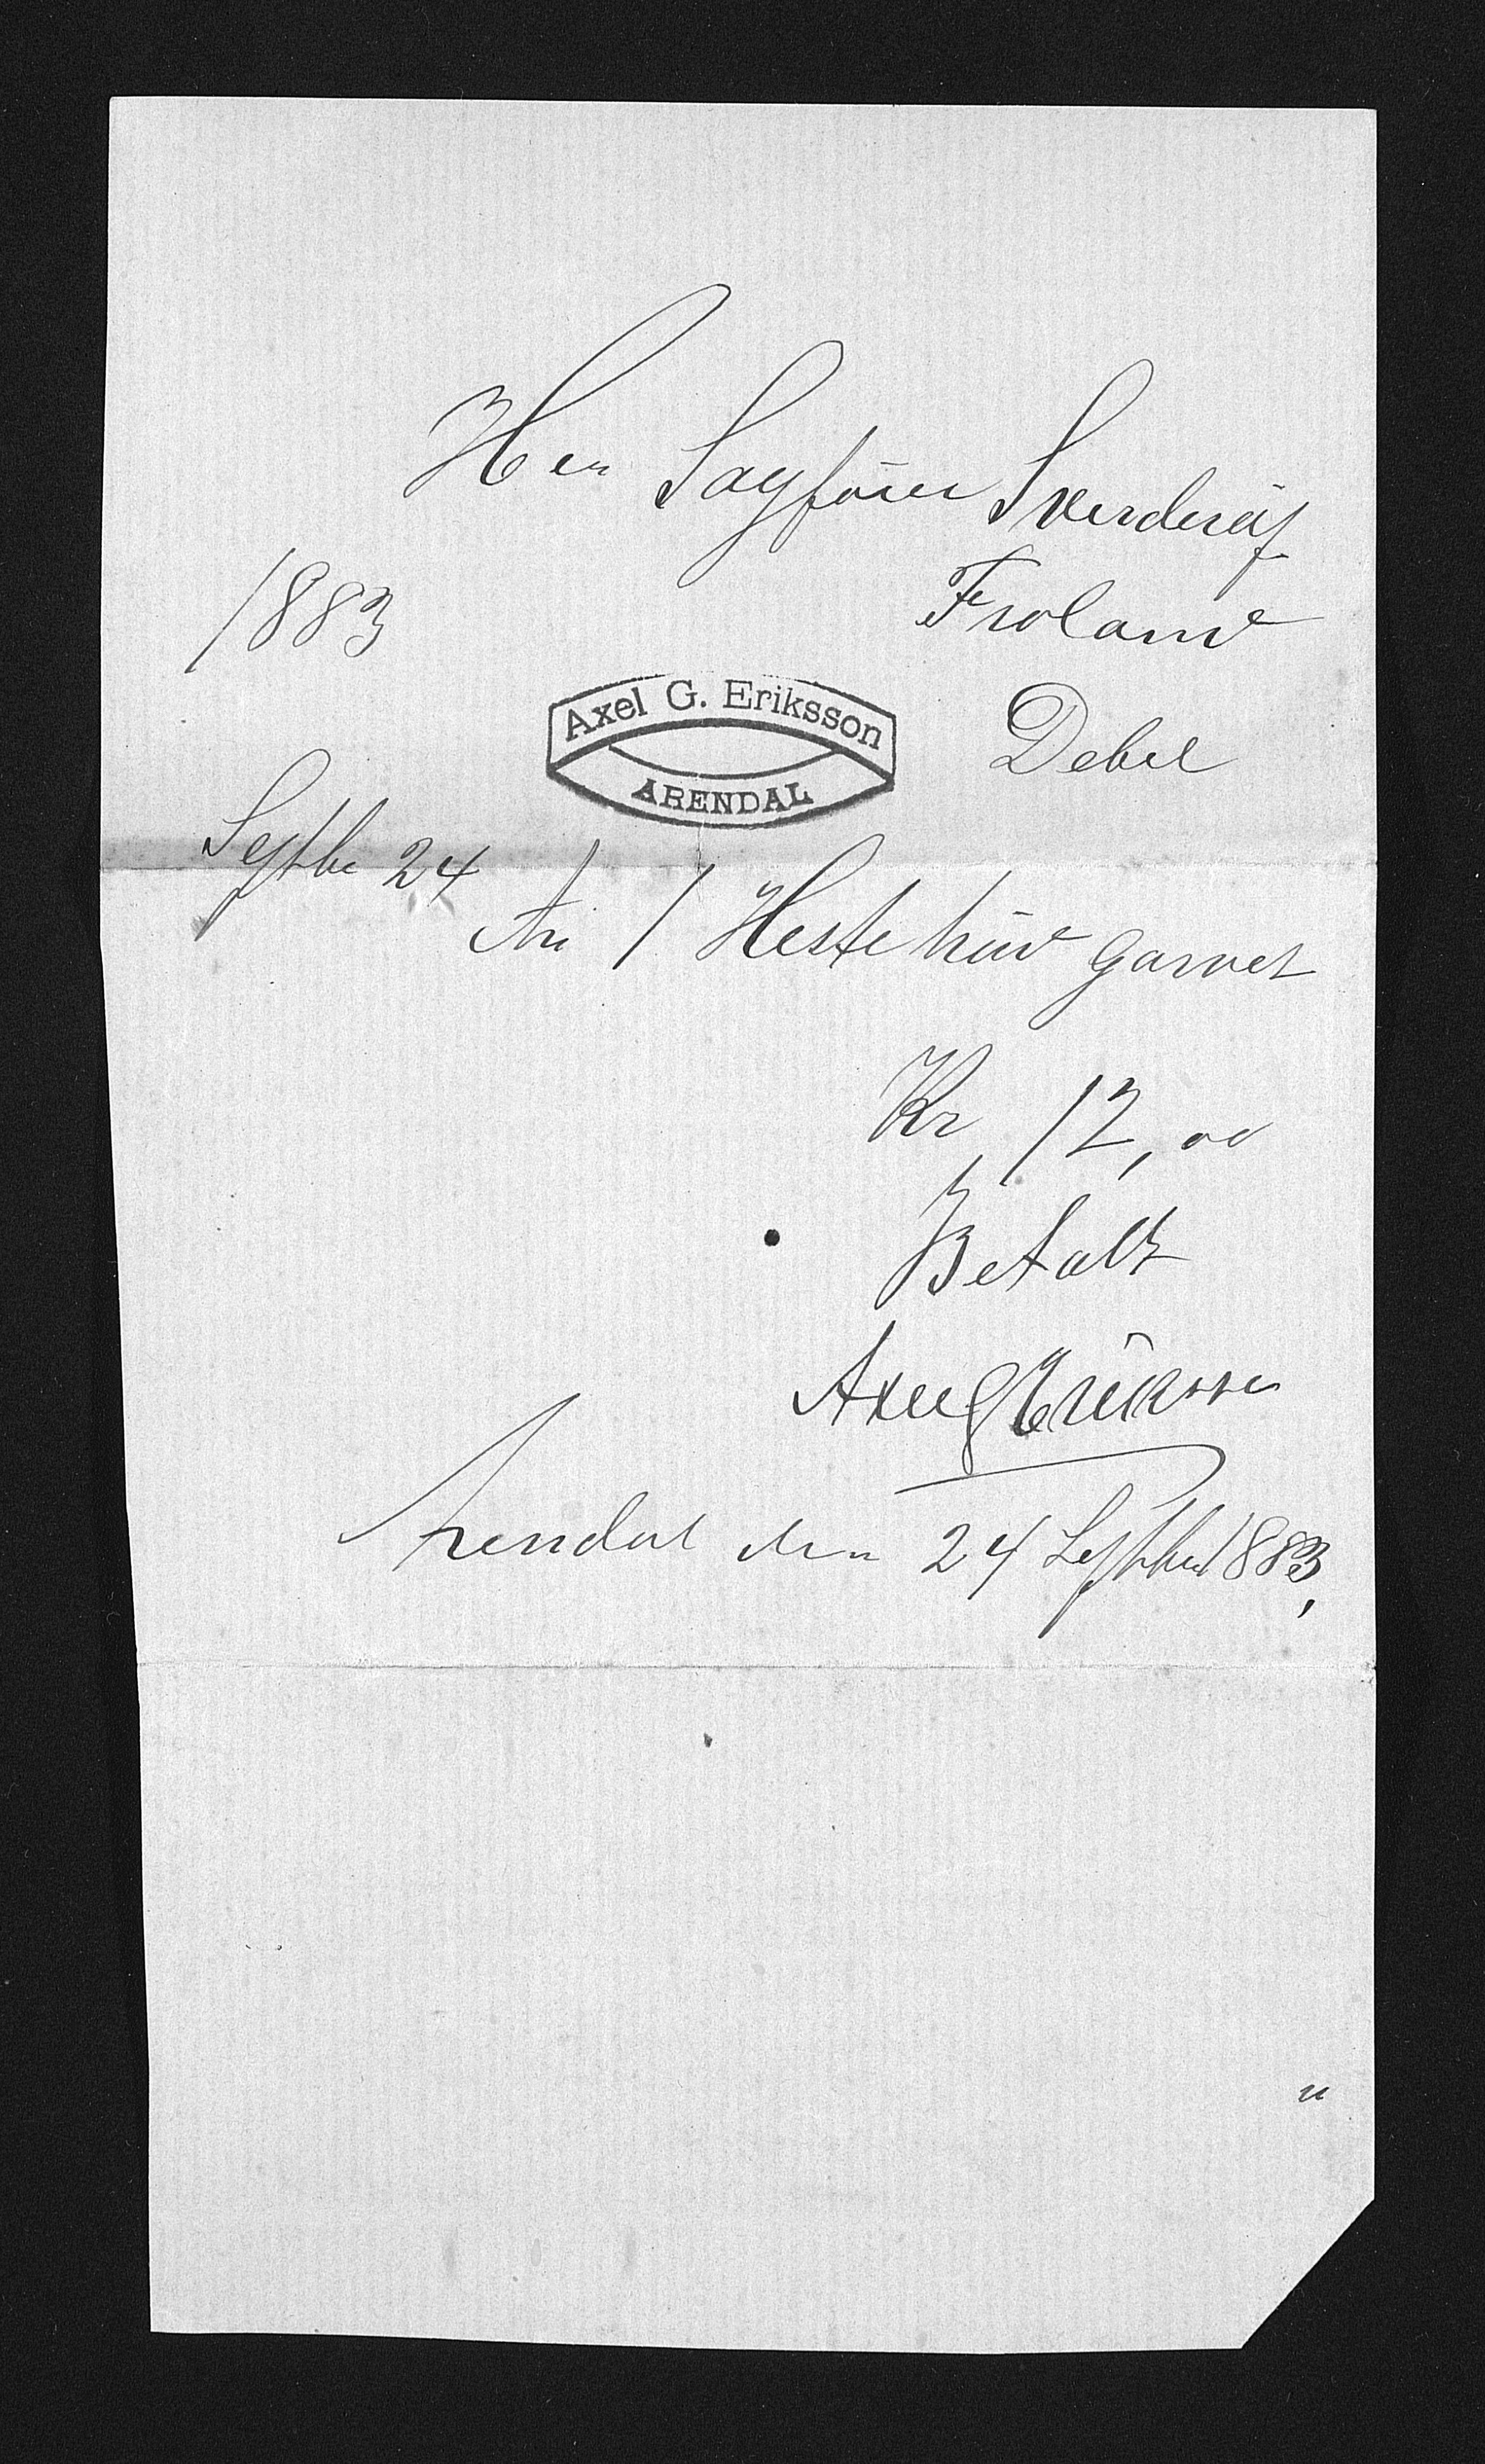 Herr Sagförer Sverdrup
1883 Froland
Axel G. Eriksson
ARENDAL
Debet
Septbr 24
An 1 Hestehud garvet
Kr 12,00
Betalt
Axel G Eriksson
Arendal den 24 Septbr 1883,